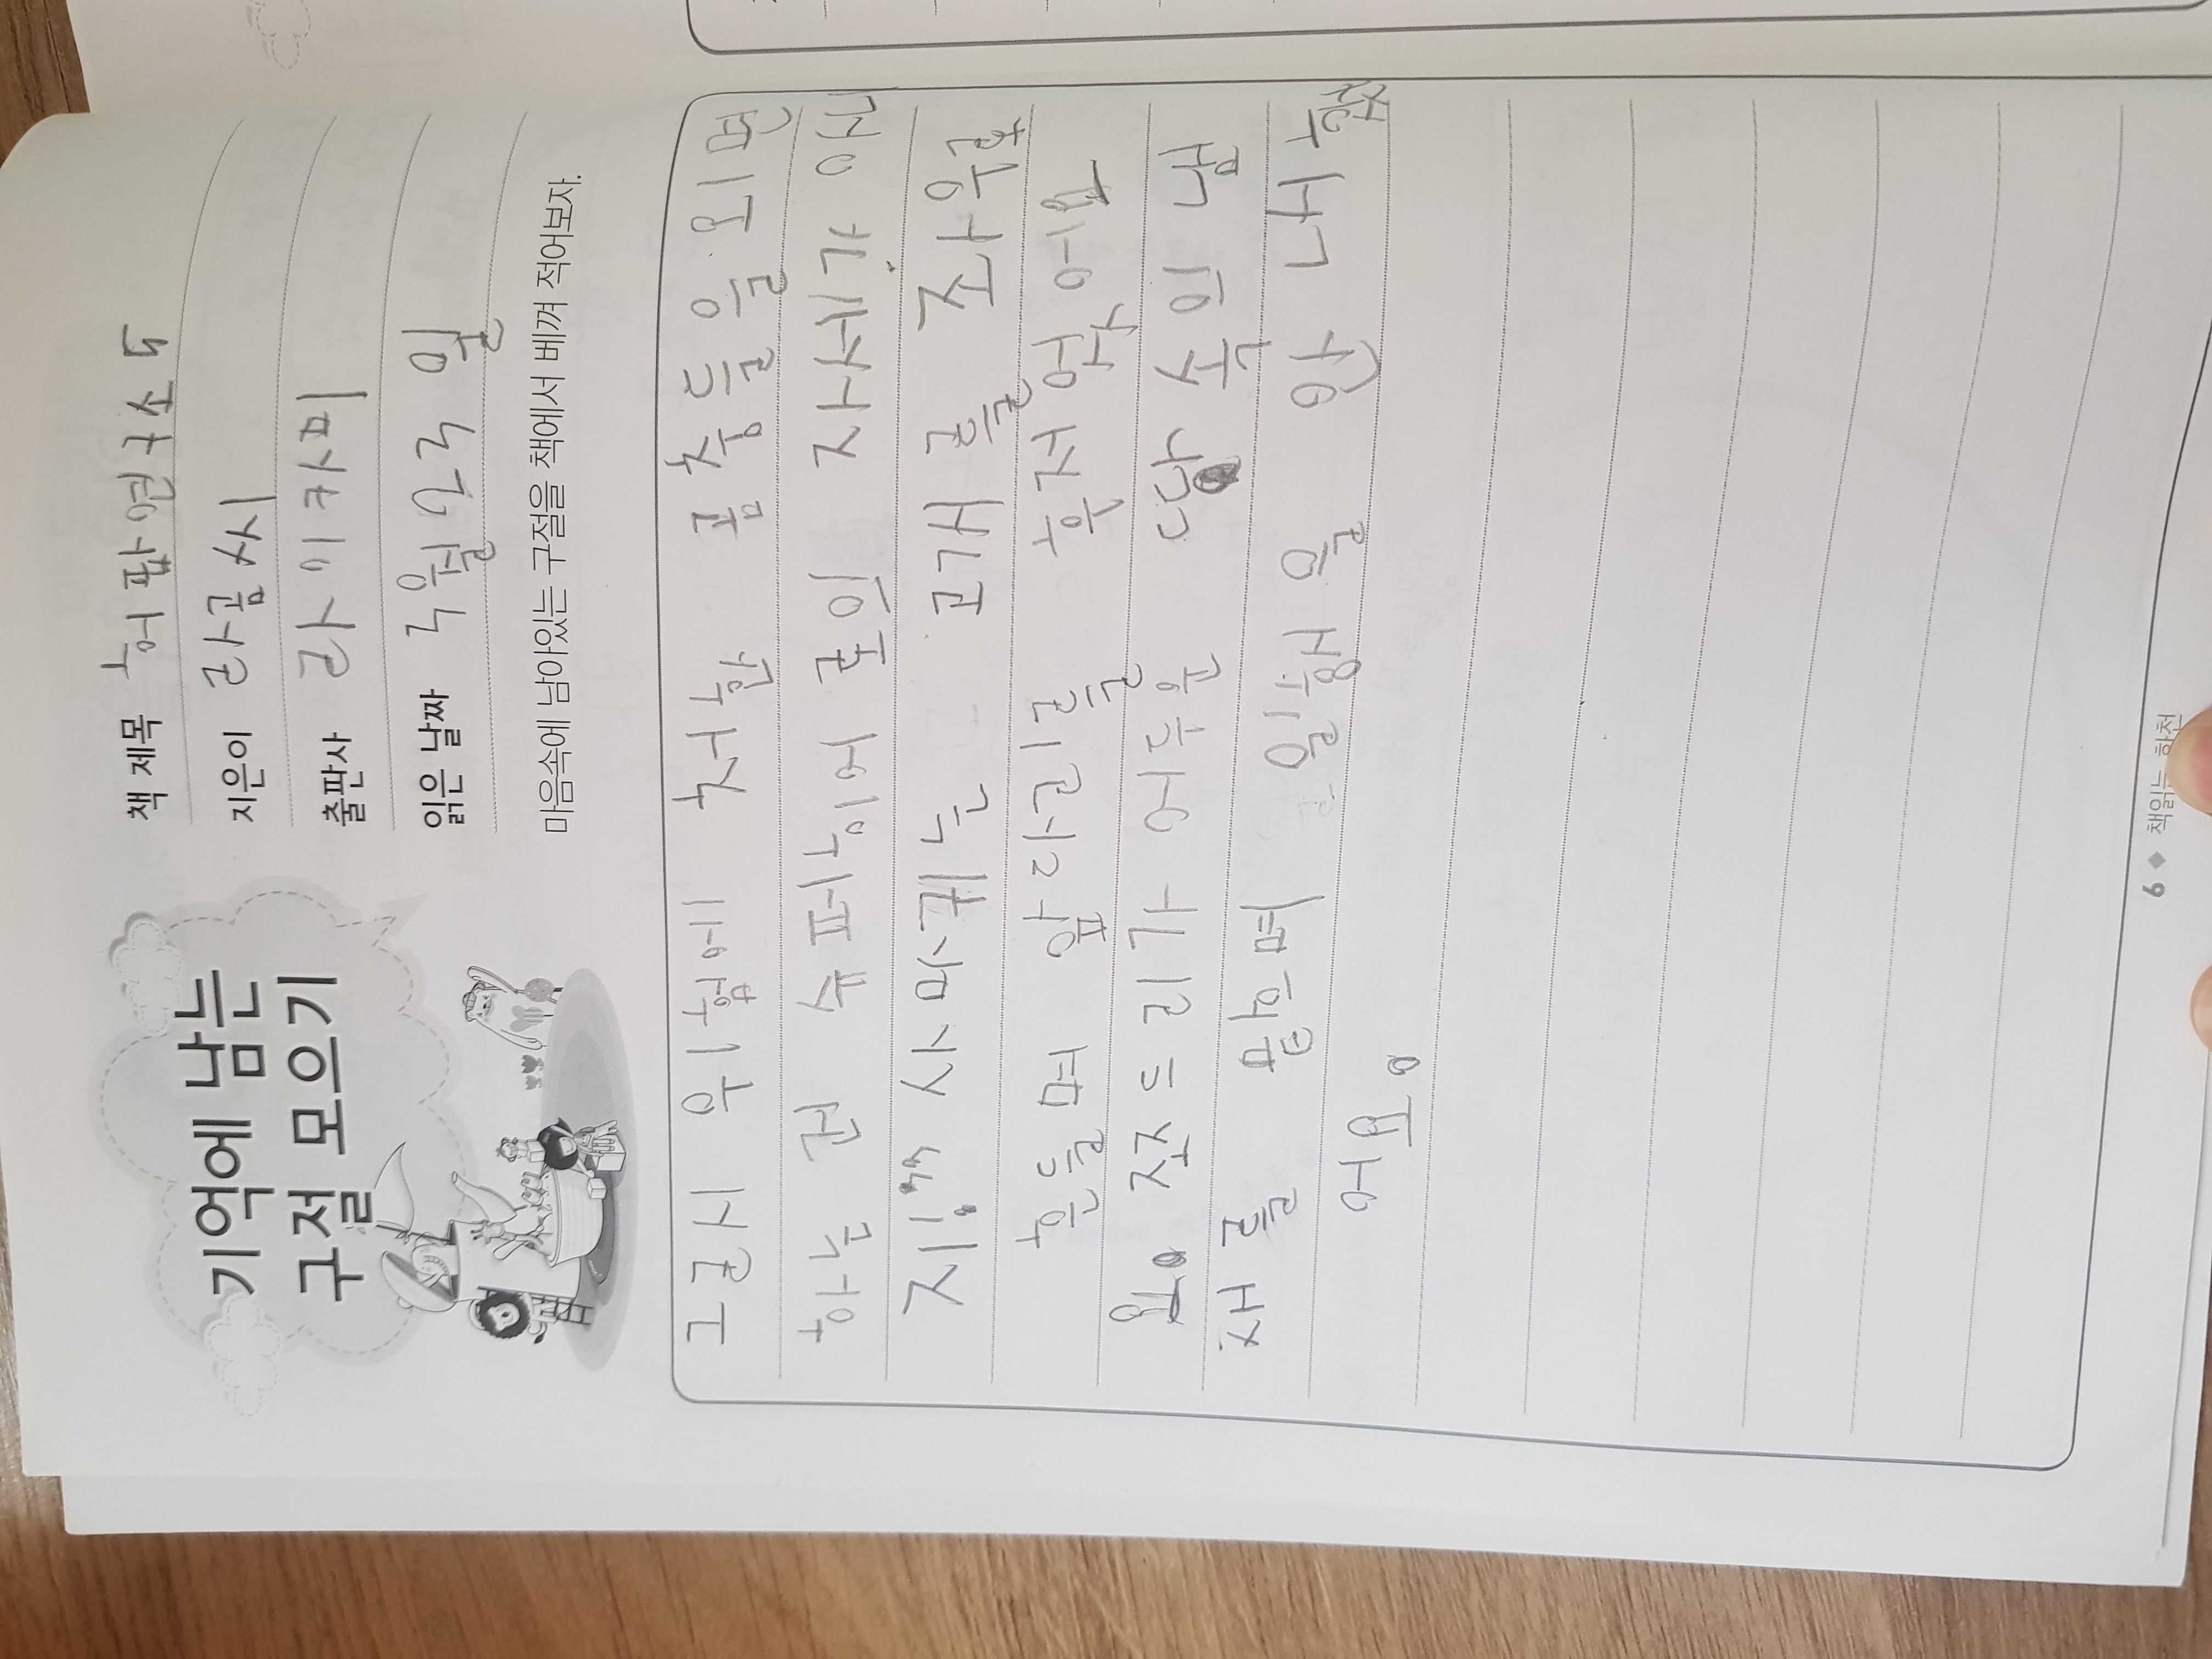 기억에 남는
구절 모으기
책 제목 허팝연구소 5
지은이 라곰씨
출판사 라이카미
읽은 날짜 3월 23일
마음속에 남아있는 구절을 책에서 베껴 적어보자.
그르시 위험에 처한 곰충들을 외면
하는 건 슈퍼히어로의 자세가
지!" 사마귀는 고개를 좌우로
흔들며 앞다리를 후저엇어요
요. 쪼드리가 어두운 땅 속의 냄
재를 맡으며 일행을 안내했
어요.
6 ◆ 책읽는 화천